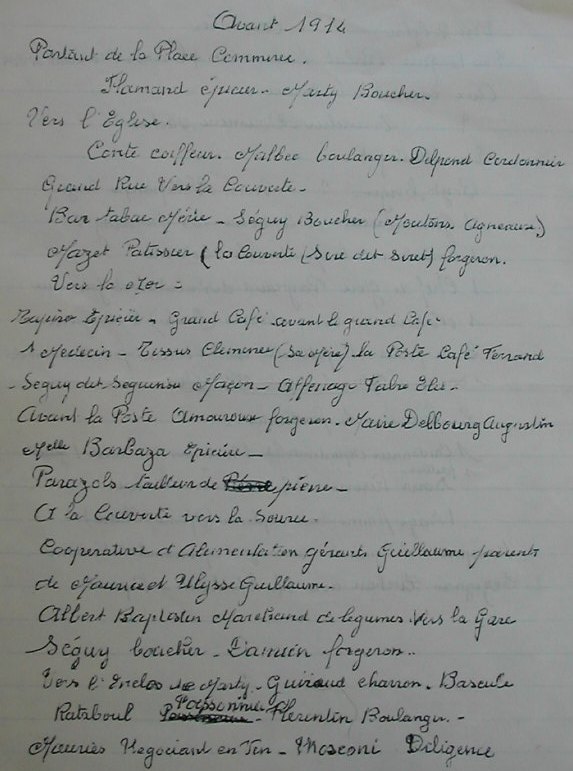 Avant 1914
Partant de la Place Commerce.
Flamand épicier - Marty Boucher.
Vers l'Eglise.
Conte coiffeur. Malbec boulanger. Delpend Cordonnier
Grand Rue Vers la Couverte -
Bar tabac Mérie - Séguy Boucher (Moutons, agneaux)
Mazet Patissier (la Couverte (Sire dit Siret) forgeron.
Vers la
Epicière - Grand Café avant le grand Café
1 Médecin - Tissus (Sa Mère) la Poste Café Ferrand
- Séguy dit Maçon - Affenage Fabre Elie -
Avant la Poste Amouroux forgeron. Maire Delbourg Augustin
Melle Barbaza Epicière -
Parazols tailleur de pierre -
A la Couverte vers la Source.
Cooperative d'Alimentation gérants Guillaume parents
de Maurice et Ulysse Guillaume.
Albert Baptistin Marchand de légumes. Vers la Gare
Séguy boucher - Damien forgeron..
Vers l'Enclos de Marty - Guiraud charron. Bascule
Rataboul Poissonnier - Florentin Boulanger. -
Mauriès Négociant en Vin - Mosconi Diligence